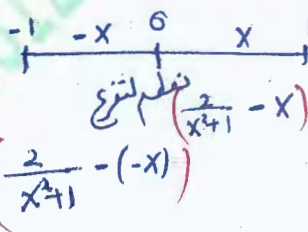 -1 -x 6 x
نعظم لتفرع
(2/(x²+1) - x)
2/(x²+1) - (-x))